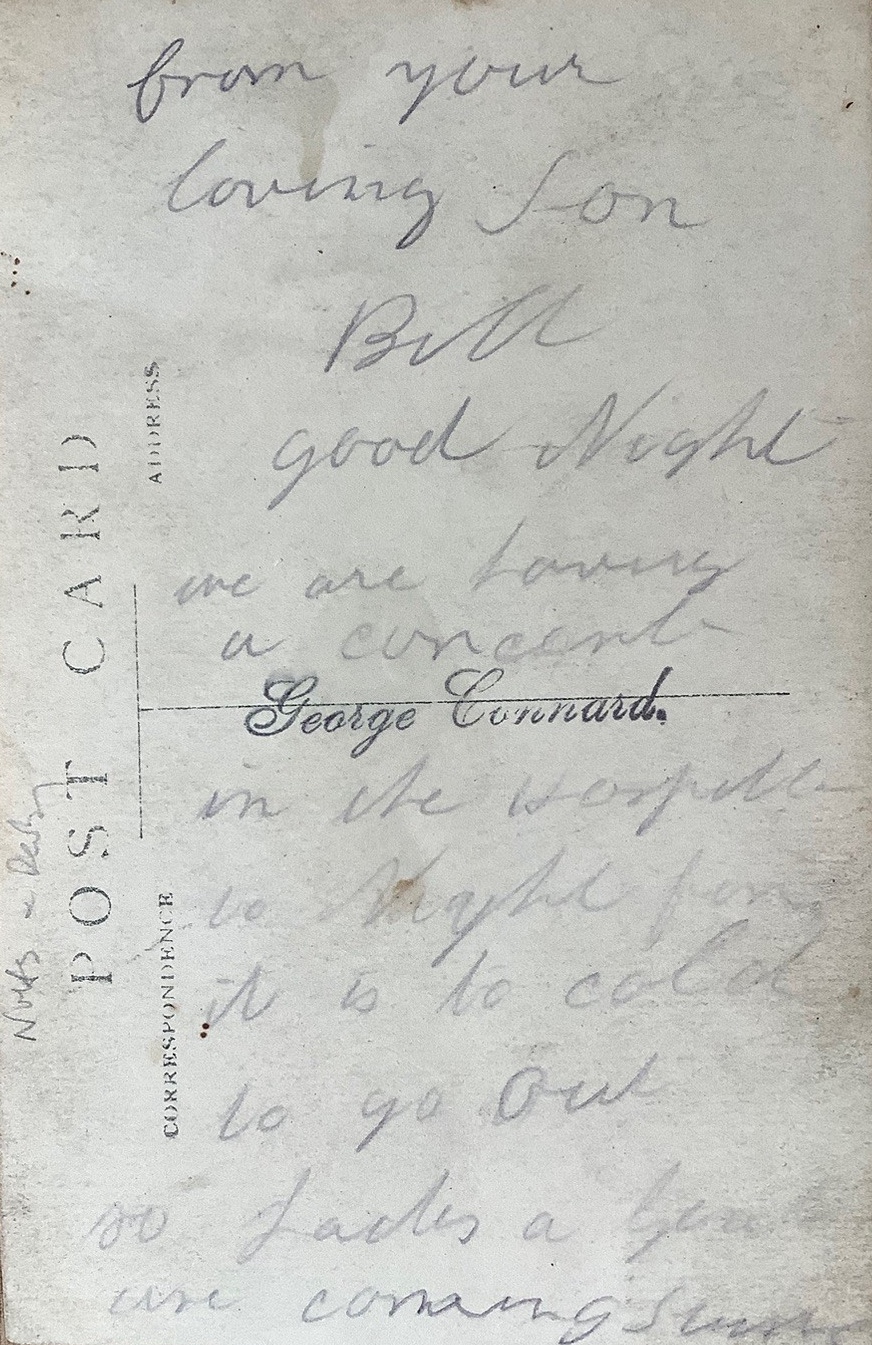 from your
loving Son
Bill
good Night
we are having
a concert
George Connard.
in the
to Night for
it is to cold
to go Out
so Ladies a
are coming
POST CARD
ADDRESS
CORRESPONDENCE
Notts & Derby